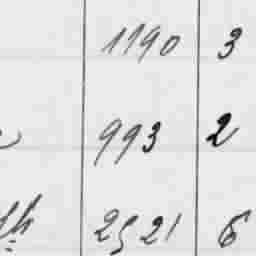 1190 3
993 2
2521 6